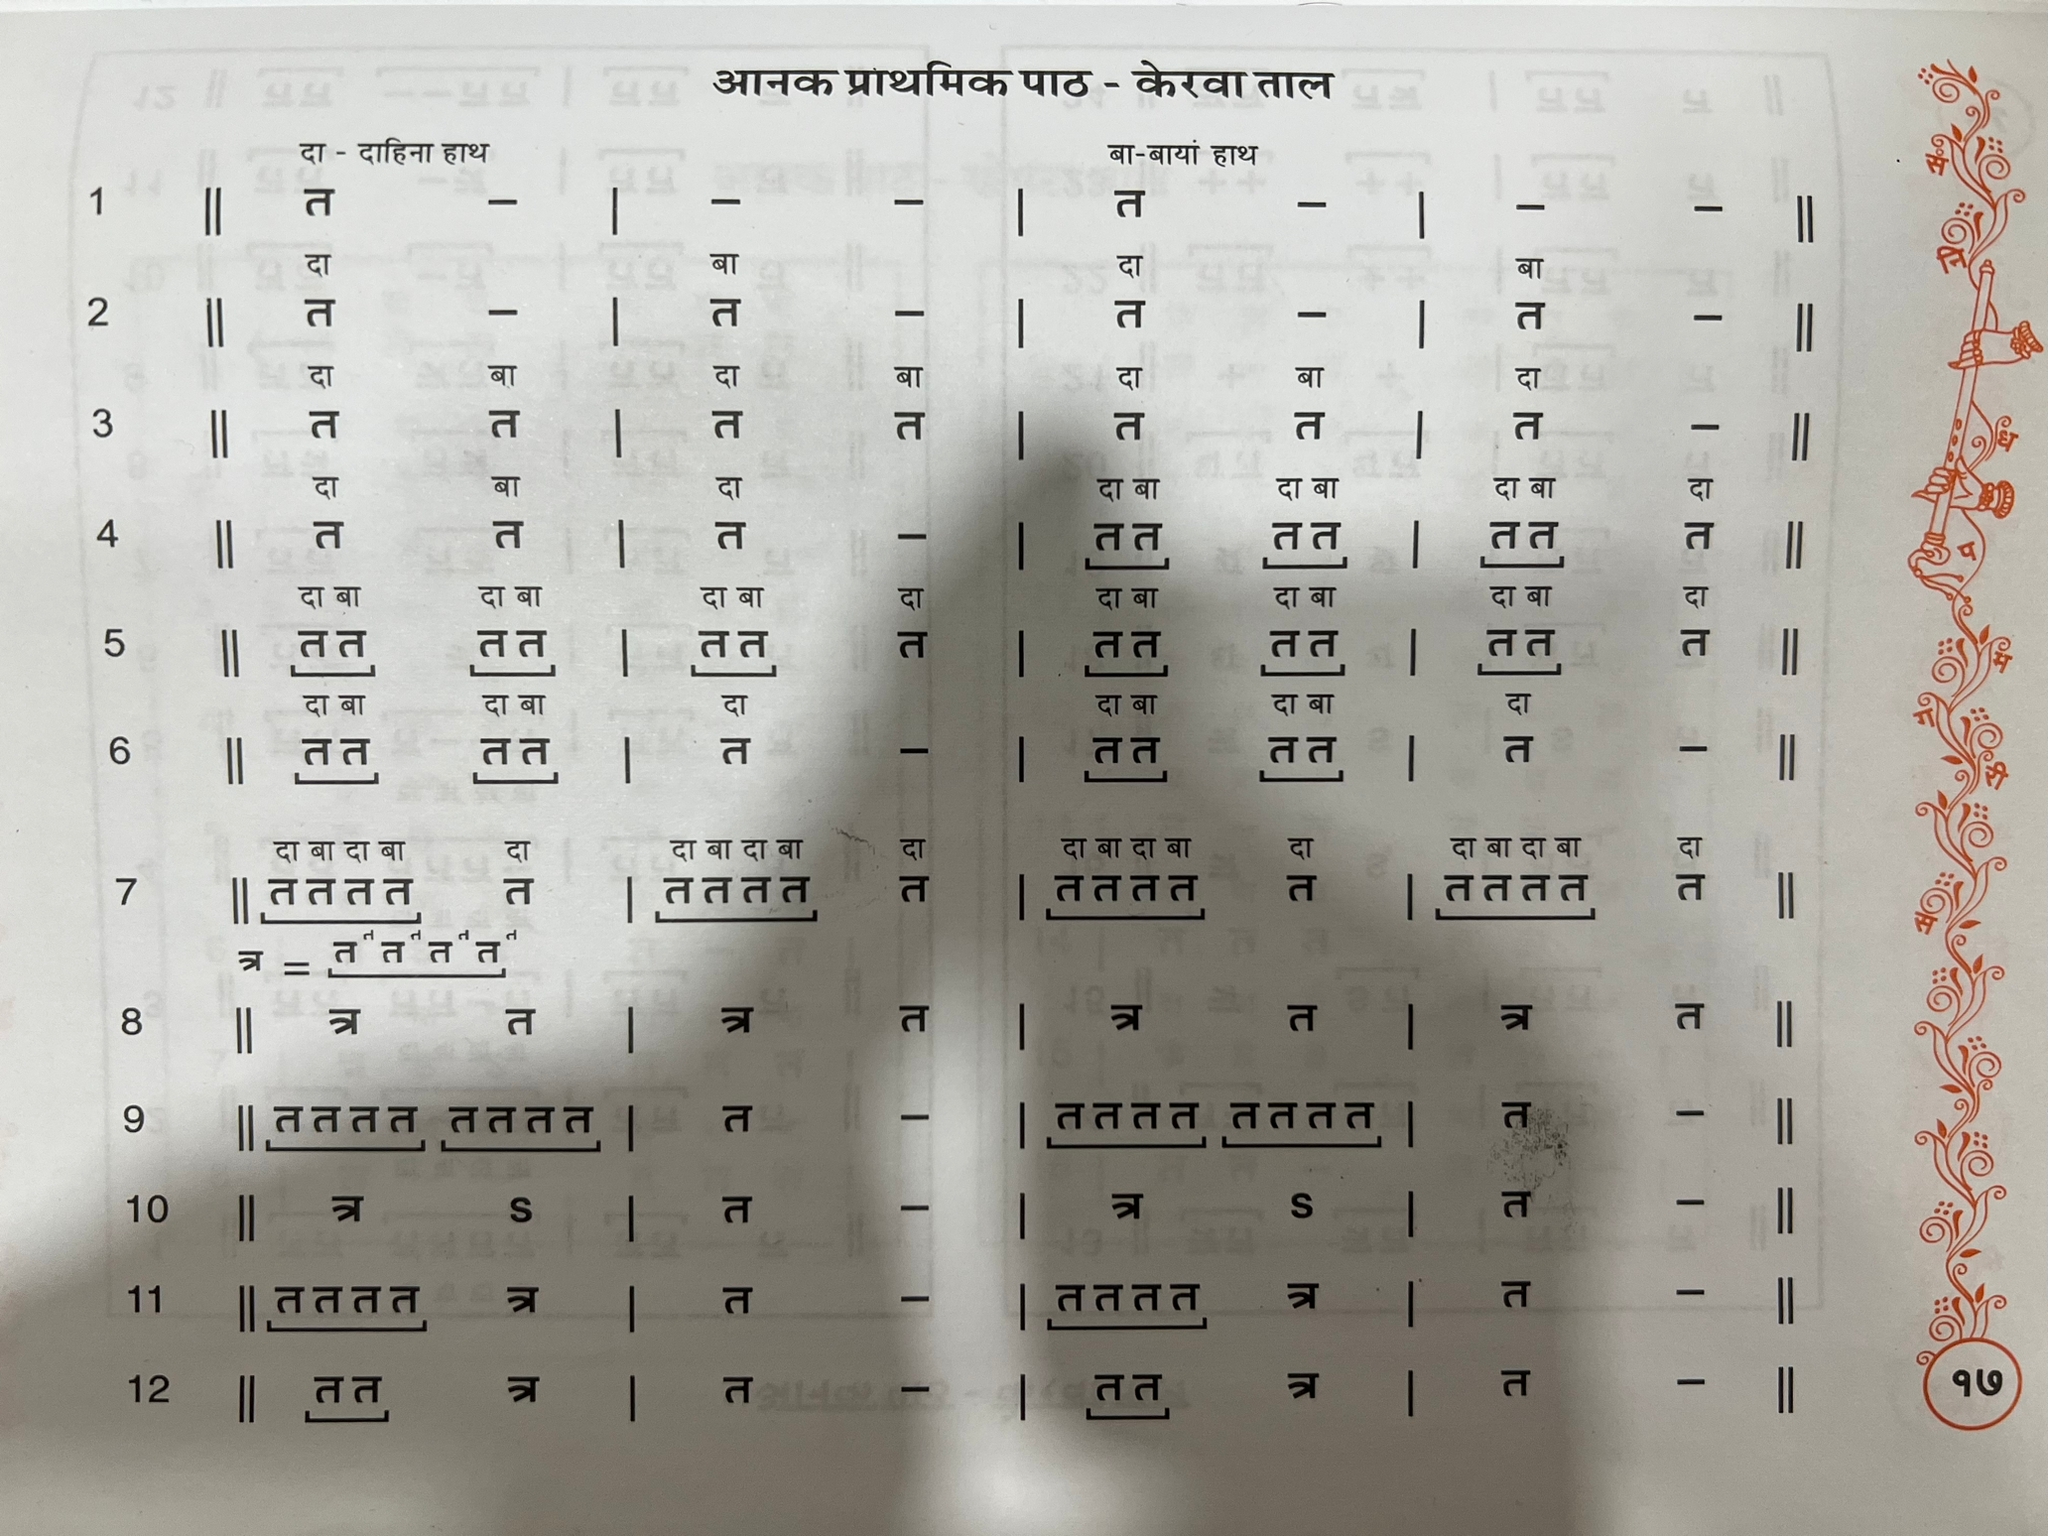 आनक प्राथमिक पाठ - केरवा ताल
दा - दाहिना हाथ बा-बायां हाथ
1 || त – | – – | त – | – – ||
दा बा दा बा
2 || त – | त – | त – | त – ||
दा बा दा बा दा बा दा
3 || त त | त त | त त | त – ||
दा बा दा दा बा दा बा दा बा दा
4 || त त | त – | त त त त | त त त ||
दा बा दा बा दा बा दा दा बा दा बा दा बा दा
5 || त त त त | त त त | त त त त | त त त ||
दा बा दा बा दा दा बा दा बा दा
6 || त त त त | त – | त त त त | त – ||
दा बा दा बा दा दा बा दा बा दा दा बा दा बा दा दा बा दा बा दा
7 || त त त त त | त त त त त | त त त त त | त त त त त ||
त्र = त त त त त त त त
8 || त्र त | त्र त | त्र त | त्र त ||
9 || त त त त त त त त | त – | त त त त त त त त | त – ||
10 || त्र S | त – | त्र S | त – ||
11 || त त त त त्र | त – | त त त त त्र | त – ||
12 || त त त्र | त – | त त त्र | त – ||
सं
नि
ध
प
म
ग
री
स
१७